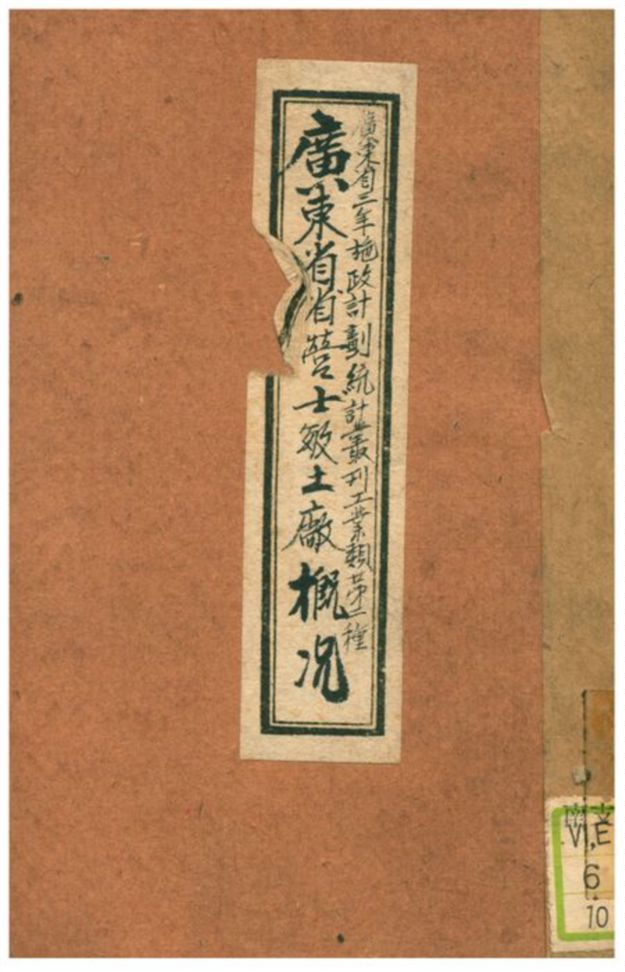 廣東省三年施政計劃統計叢刊工業類第一種
廣東省省營士敏土廠概况
VI,E
6
10